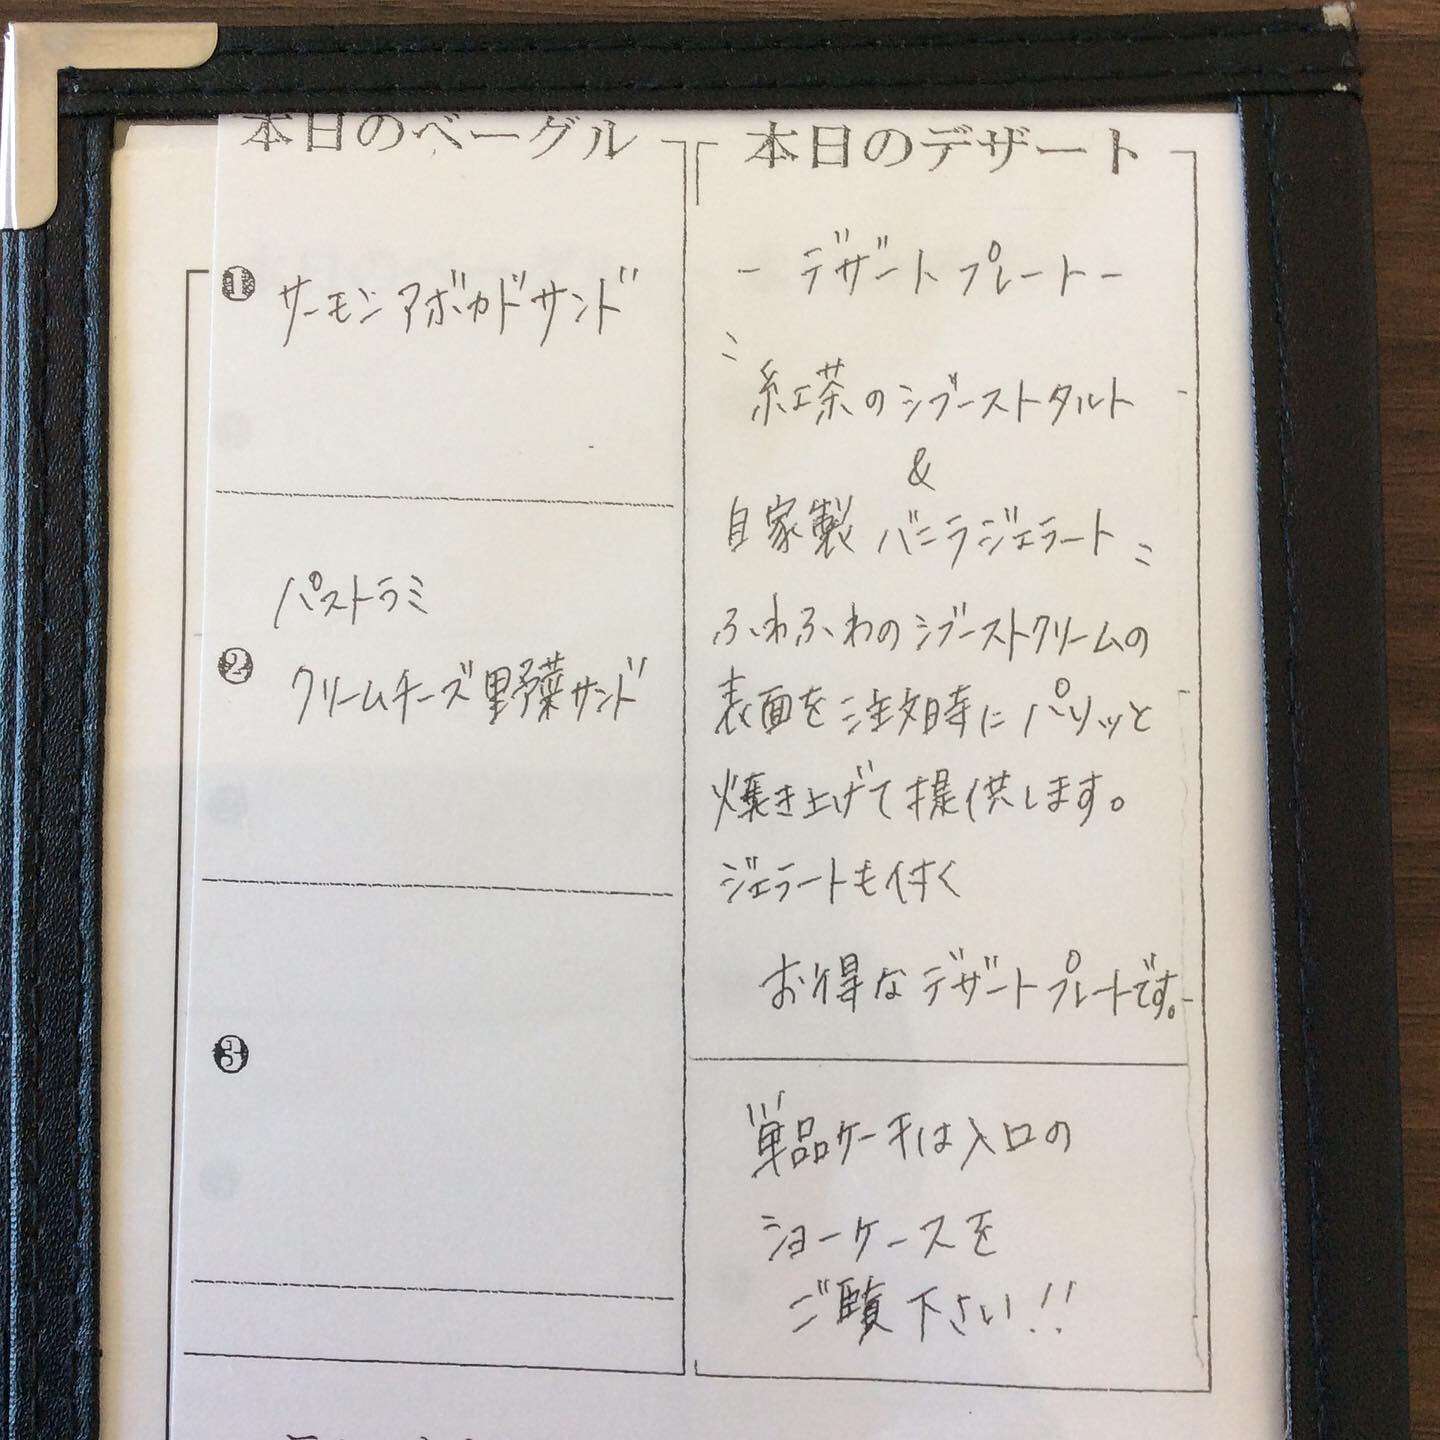 本日のベーグル
❶ サーモンアボカドサンド
パストラミ
❷ クリームチーズ野菜サンド
❸
本日のデザート
- デザートプレート -
〝紅茶のシブーストタルト
&
自家製 バニラジェラート〟
ふわふわのシブーストクリームの
表面を注文時にパリッと
焼き上げて提供します。
ジェラートも付く
お得なデザートプレートです。
単品ケーキは入口の
ショーケースを
ご覧下さい!!